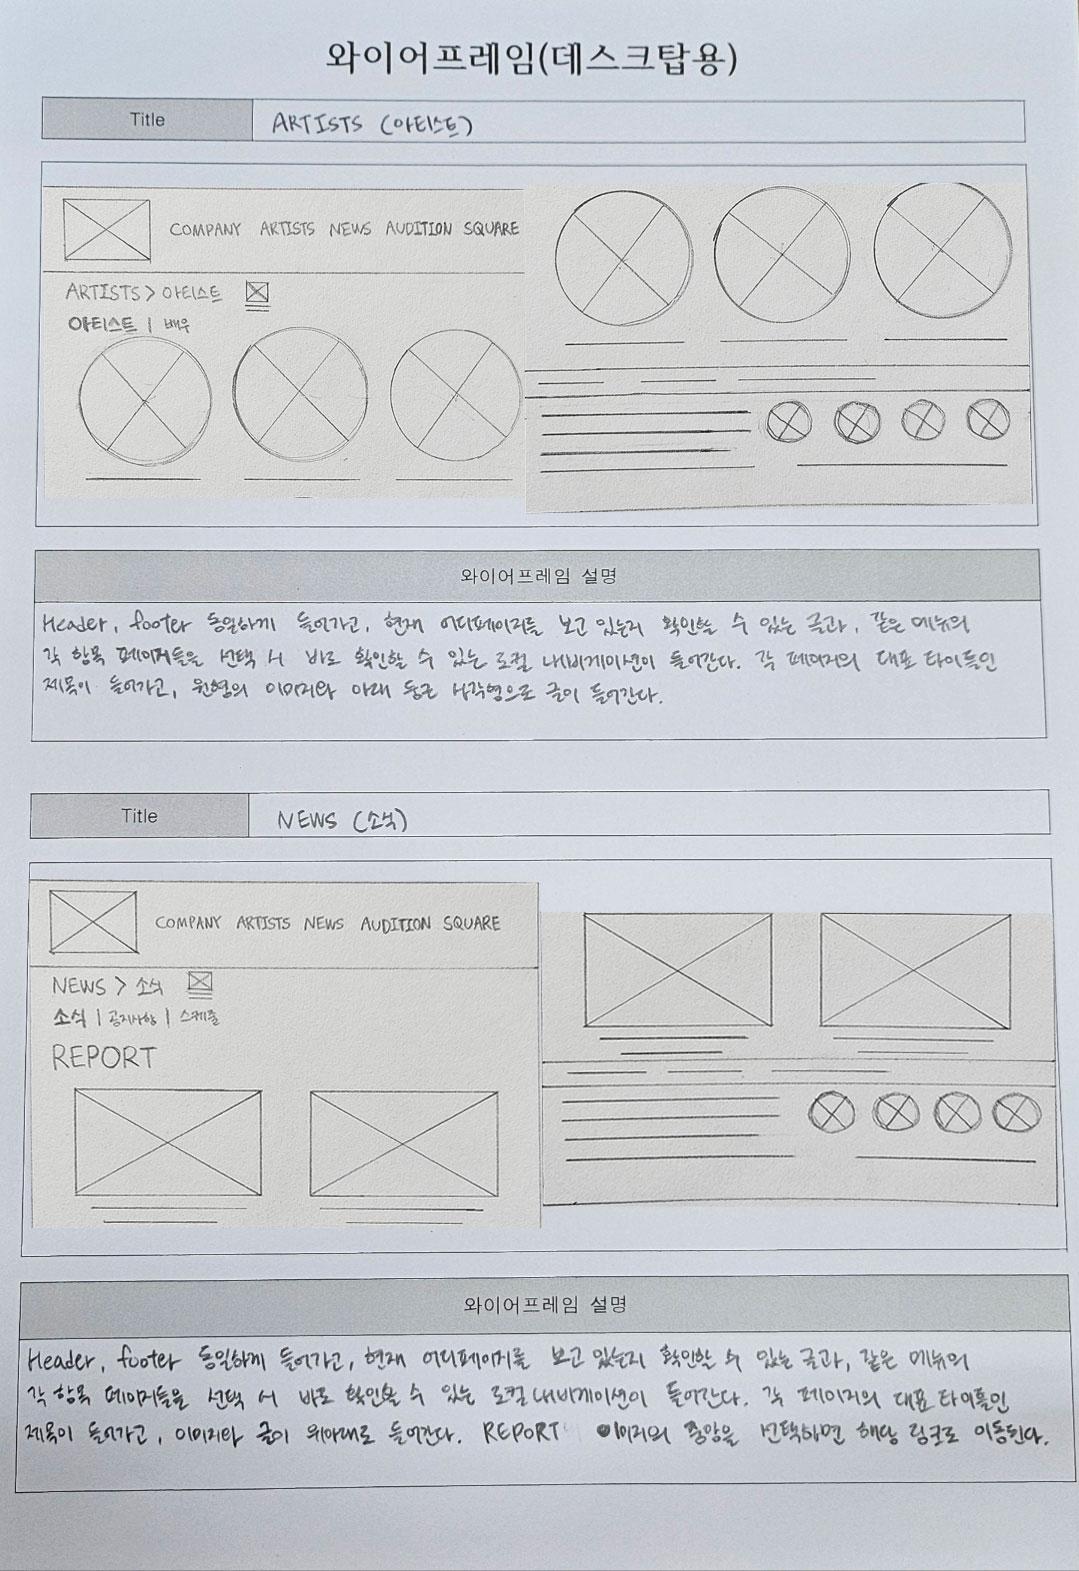 와이어프레임(데스크탑용)
Title
ARTISTS (아티스트)
COMPANY ARTISTS NEWS AUDITION SQUARE
ARTISTS > 아티스트
아티스트 | 배우
와이어프레임 설명
Header, footer 동일하게 들어가고, 현재 어디페이지를 보고 있는지 확인할 수 있는 글과, 같은 메뉴의
각 항목 페이지들을 선택 시 바로 확인할 수 있는 로컬 내비게이션이 들어간다. 각 페이지의 대표 타이틀인
제목이 들어가고, 원형의 이미지와 아래 둥근 사각형으로 글이 들어간다.
Title
NEWS (소식)
COMPANY ARTISTS NEWS AUDITION SQUARE
NEWS > 소식
소식 | 공지사항 | 스케줄
REPORT
와이어프레임 설명
Header, footer 동일하게 들어가고, 현재 어디페이지를 보고 있는지 확인할 수 있는 글과, 같은 메뉴의
각 항목 페이지들을 선택 시 바로 확인할 수 있는 로컬 내비게이션이 들어간다. 각 페이지의 대표 타이틀인
제목이 들어가고, 이미지와 글이 위아래로 들어간다. REPORT 이미지의 중앙을 선택하면 해당 링크로 이동된다.